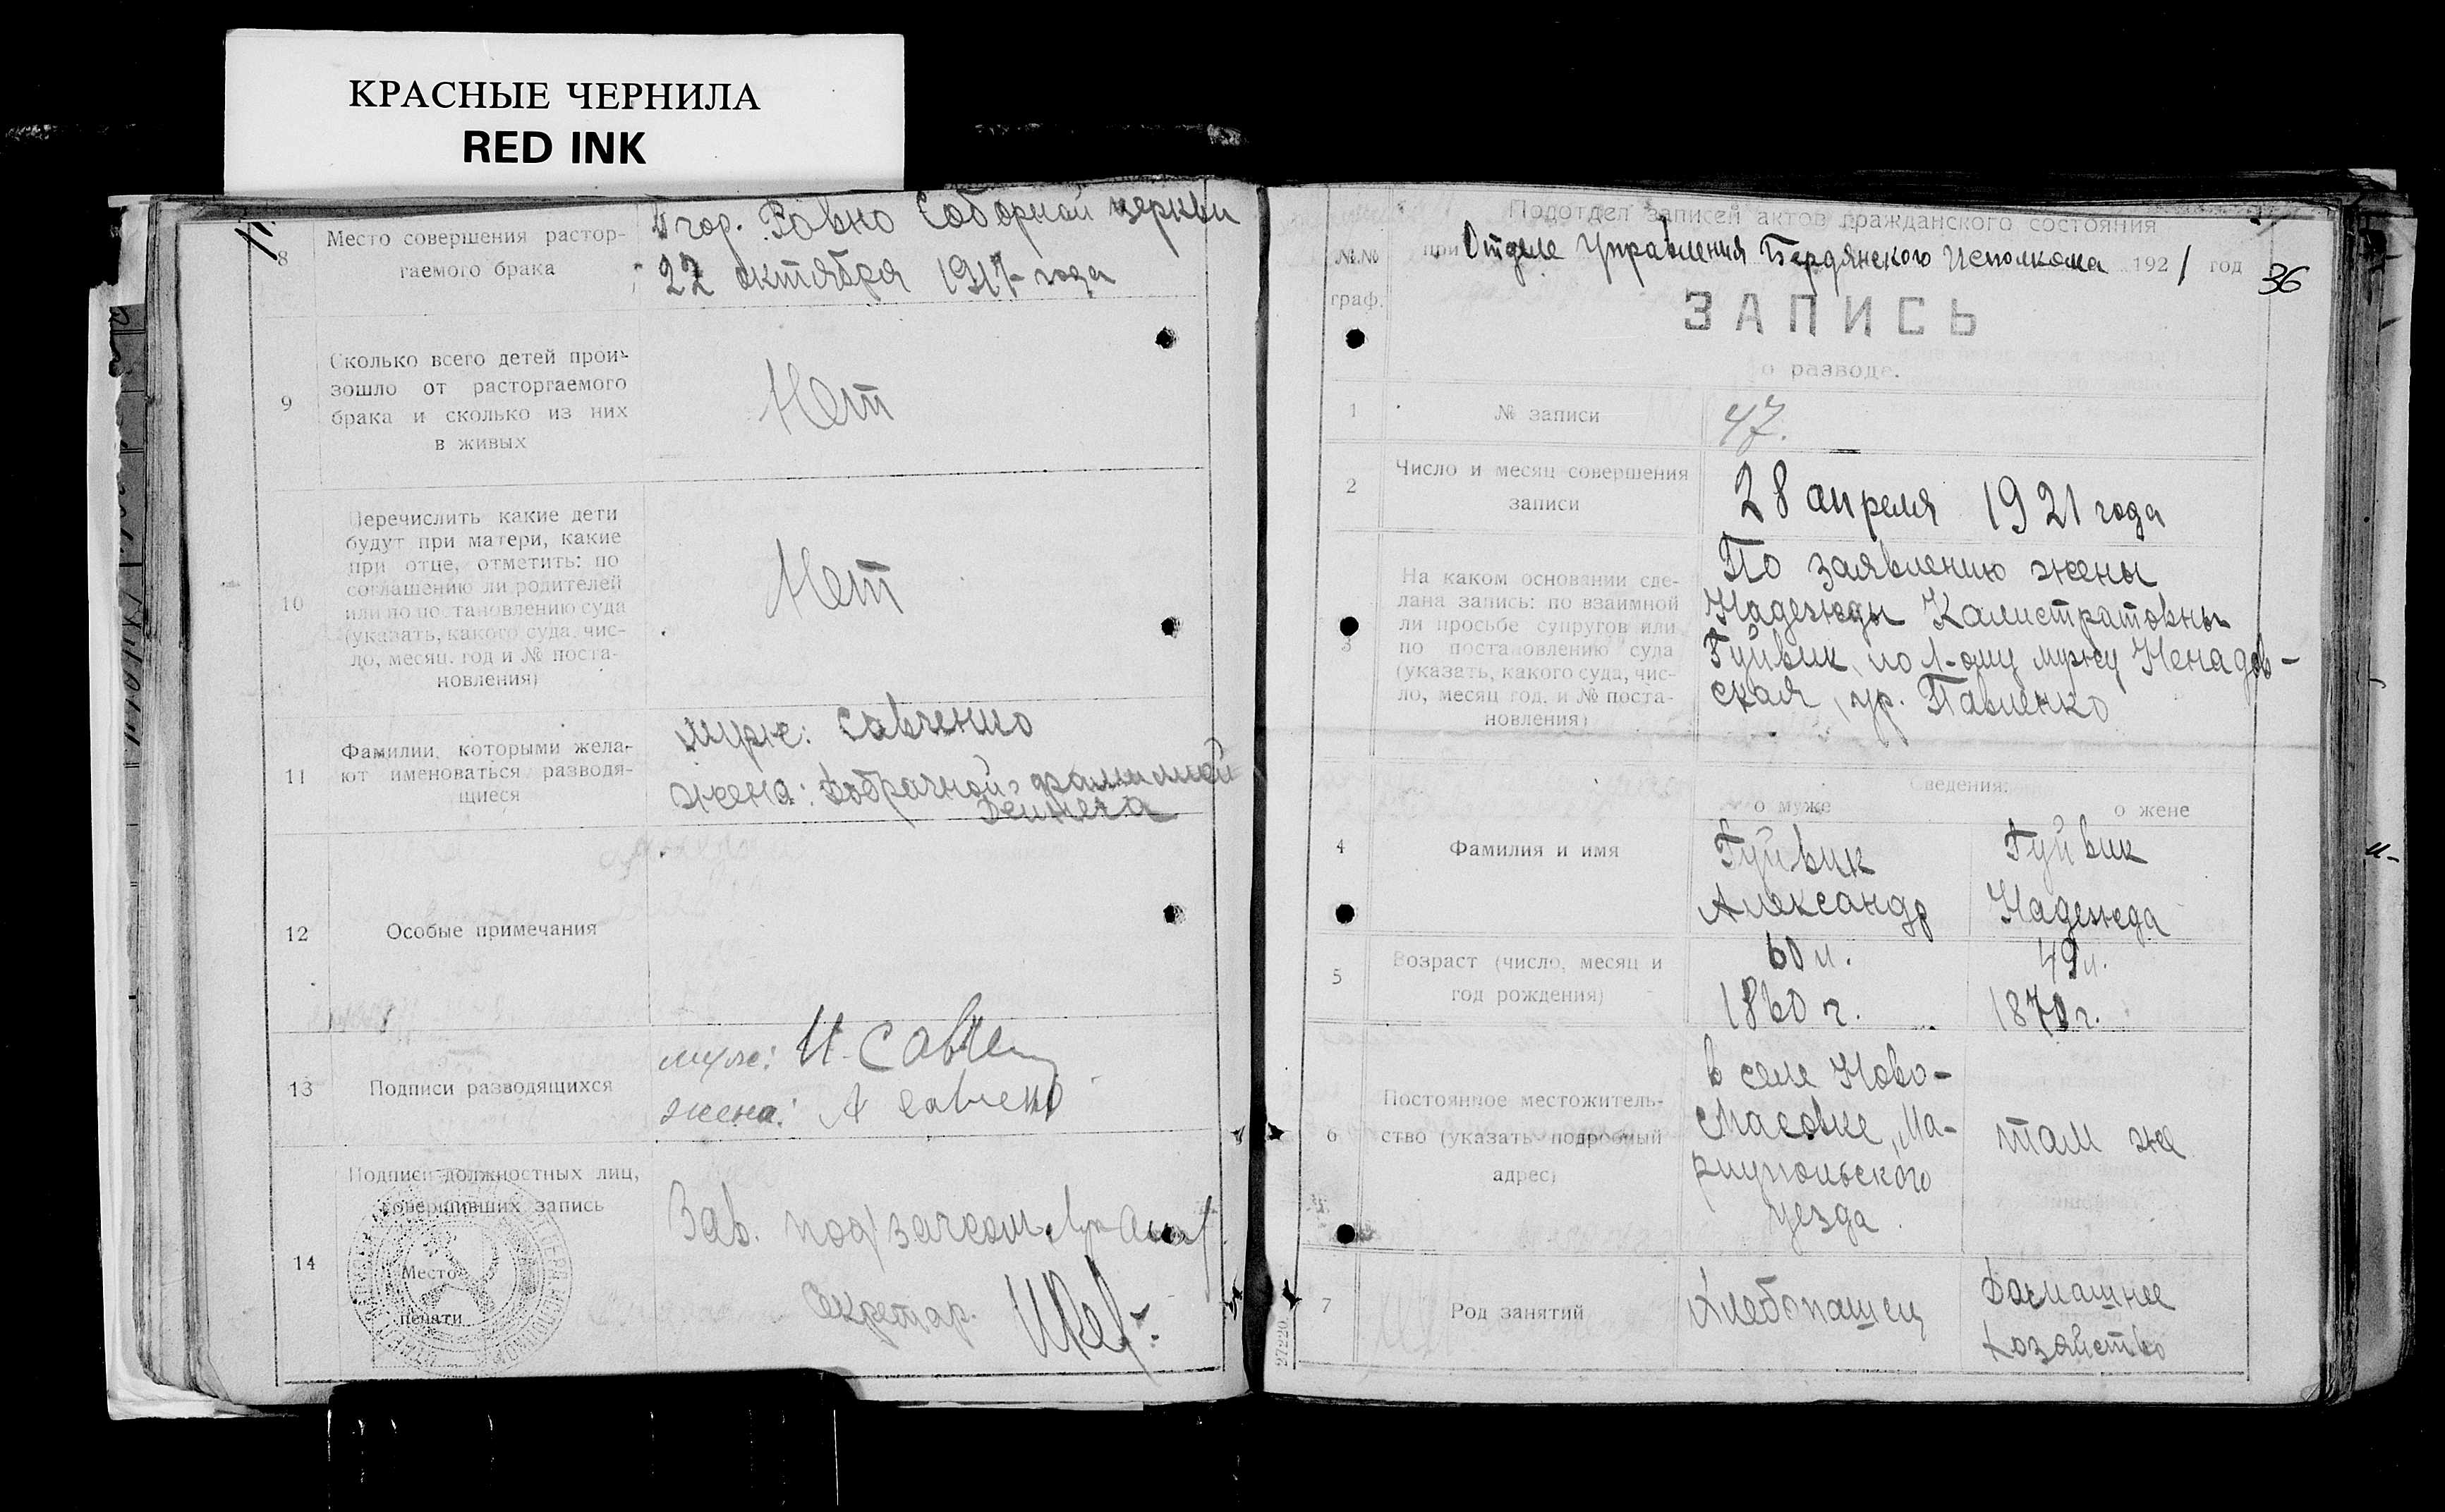 КРАСНЫЕ ЧЕРНИЛА
RED INK
8
Место совершения растор-
гаемого брака
В гор. Ровно Соборной церкви
22 октября 1917 года
9
Сколько всего детей прои-
зошло от расторгаемого
брака и сколько из них
в живых
Нет
10
Перечислить какие дети
будут при матери, какие
при отце, отметить: по
соглашению ли родителей
или по постановлению суда
(указать, какого суда, чис-
ло, месяц, год и № поста-
новления)
Нет
11
Фамилии, которыми жела-
ют именоваться разводя-
щиеся
муж: Савченко
жена: добрачной фамилией
12
Особые примечания
13
Подписи разводящихся
муж: И. Савчен
жена: А Савченко
14
Подписи должностных лиц,
совершивших запись
Место
печати
Зав. под/загсом
Секретар.
№№
граф.
Подотдел записей актов гражданского состояния
при Отделе Управления Бердянского Исполкома 1921 год
36
ЗАПИСЬ
о разводе.
1
№ записи
47.
2
Число и месяц совершения
записи
28 апреля 1921 года
3
На каком основании сде-
лана запись: по взаимной
ли просьбе супругов или
по постановлению суда
(указать, какого суда, чис-
ло, месяц год, и № поста-
новления)
По заявлению жены
Надежды Калистратовны
Гуйвик, по 1-ому мужу Ненадов-
ская, ур. Павленко
Сведения:
о муже
о жене
4
Фамилия и имя
Гуйвик
Александр
Гуйвик
Надежда
5
Возраст (число, месяц и
год рождения)
60 л.
1860 г.
49 л.
1870 г.
6
Постоянное местожитель-
ство (указать подробный
адрес)
в селе Ново-
спасовке, Ма-
риупольского
уезда
там же
7
Род занятий
Хлебопашец
Домашнее
хозяйство
27220